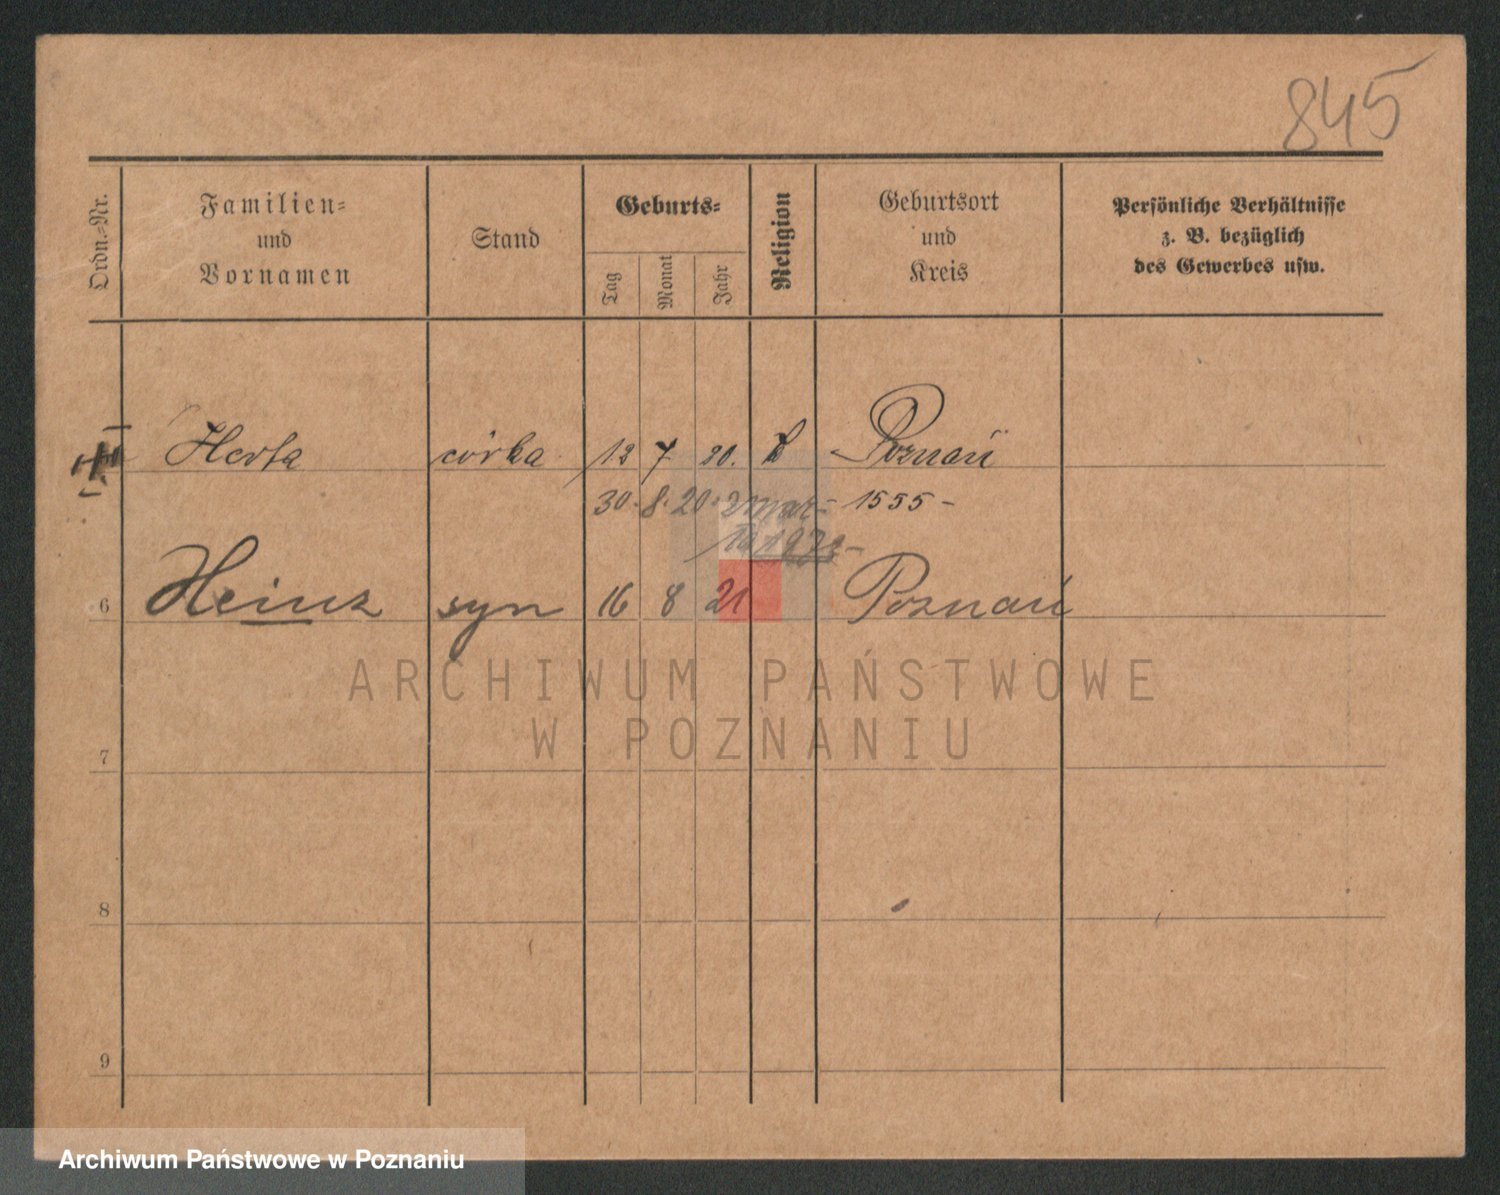 845
Ordn.=Nr.
Familien=
und
Vornamen
Stand
Geburts=
Tag
Monat
Jahr
Religion
Geburtsort
und
Kreis
Persönliche Verhältnisse
z. B. bezüglich
des Gewerbes usw.
Herta córka 12 7 20. Poznań
30. 8. 20. zmar= 1555 -
6 Heinz syn 16 8 21 Poznań
ARCHIWUM PAŃSTWOWE
W POZNANIU
7
8
9
Archiwum Państwowe w Poznaniu